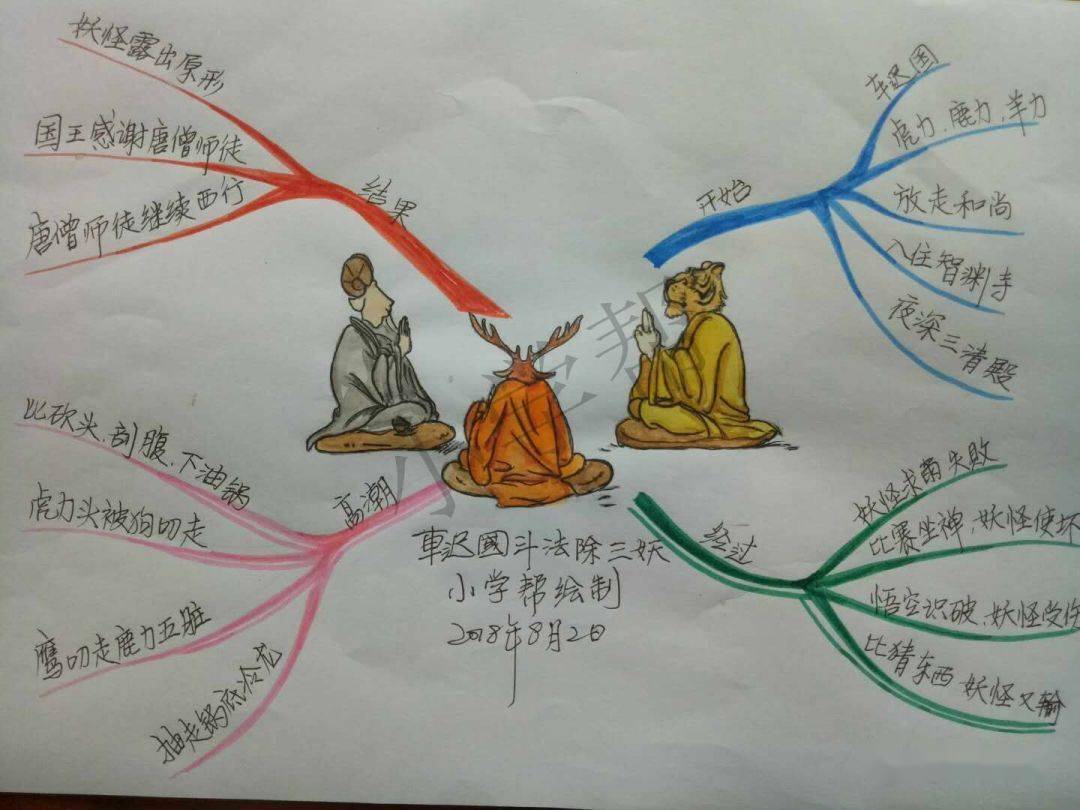 车迟國斗法除三妖
小学帮绘制
2018年8月2日
开始
车迟国
虎力、鹿力、羊力
放走和尚
入住智渊寺
夜深三清殿
经过
妖怪求雨失败
比赛坐禅、妖怪使坏
悟空识破、妖怪受伤
比猜东西 妖怪又输
高潮
比砍头、剖腹、下油锅
虎力头被狗叼走
鹰叼走鹿力五脏
抽走锅底冷龙
结果
妖怪露出原形
国王感谢唐僧师徒
唐僧师徒继续西行
小学帮